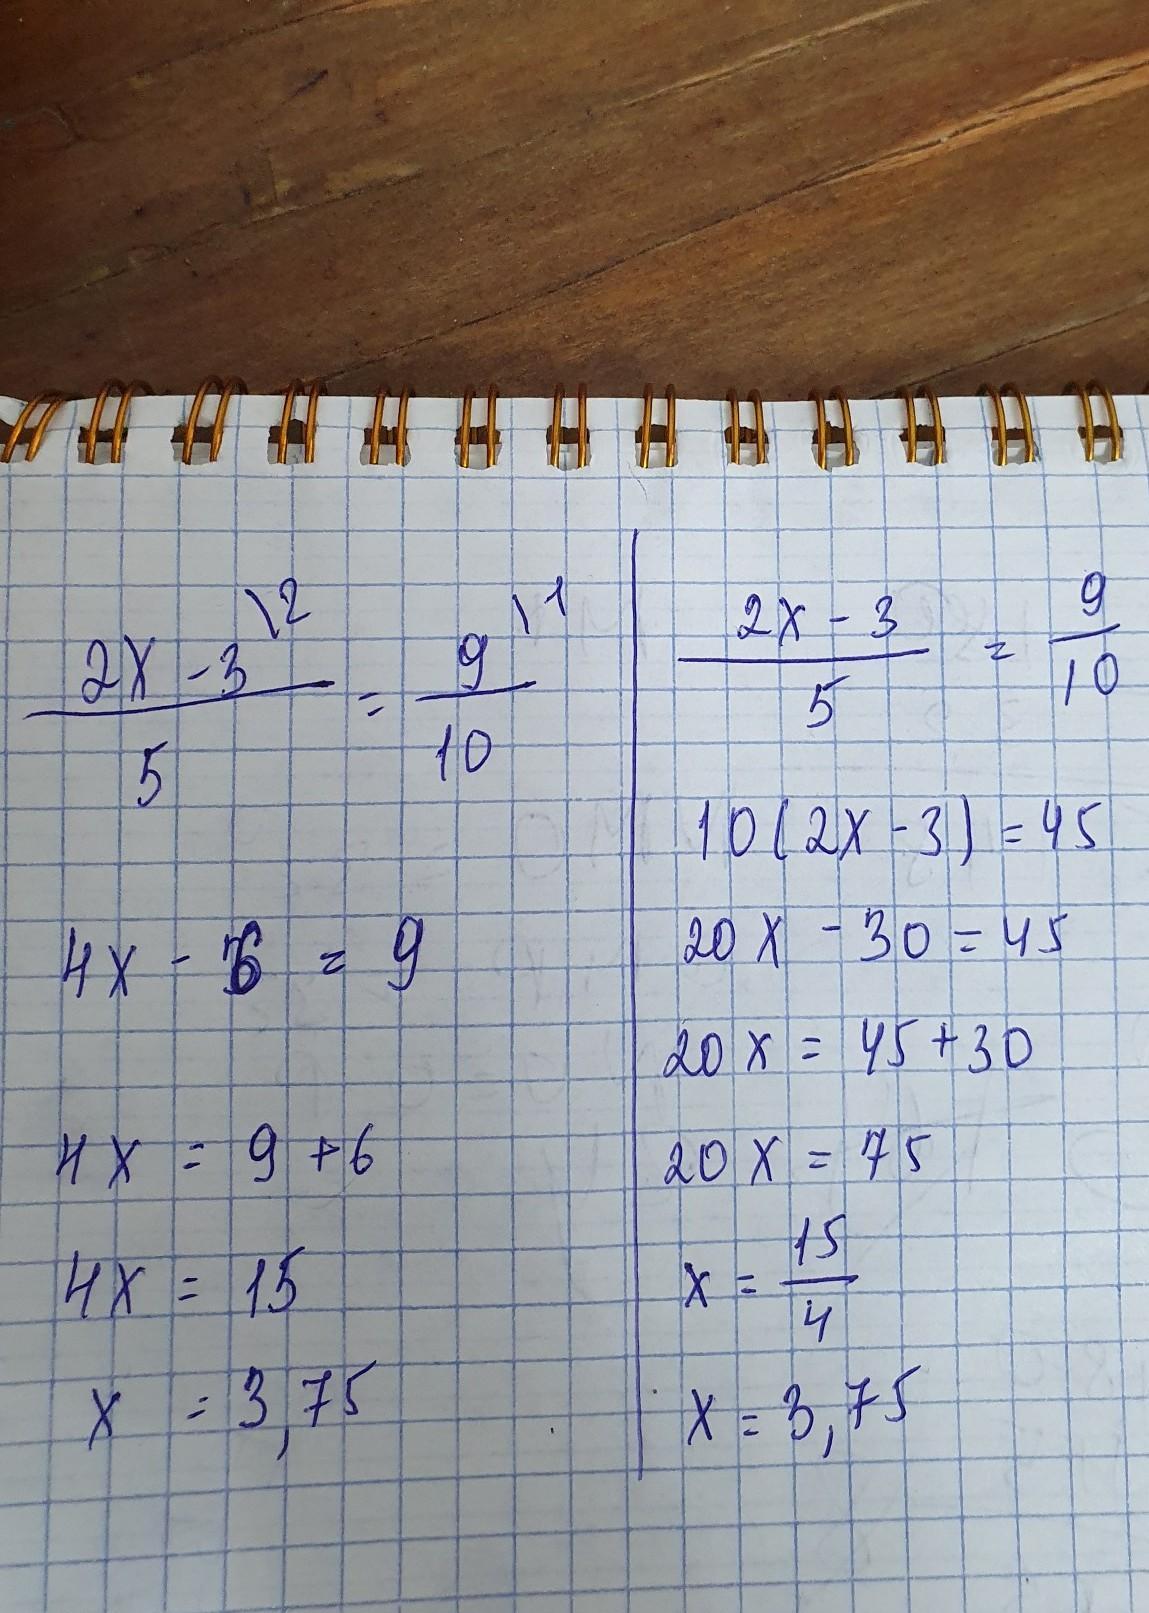 (2x - 3)/5 \2 = 9/10 \1
4x - 6 = 9
4x = 9 + 6
4x = 15
x = 3,75
(2x - 3)/5 = 9/10
10(2x - 3) = 45
20x - 30 = 45
20x = 45 + 30
20x = 75
x = 15/4
x = 3,75